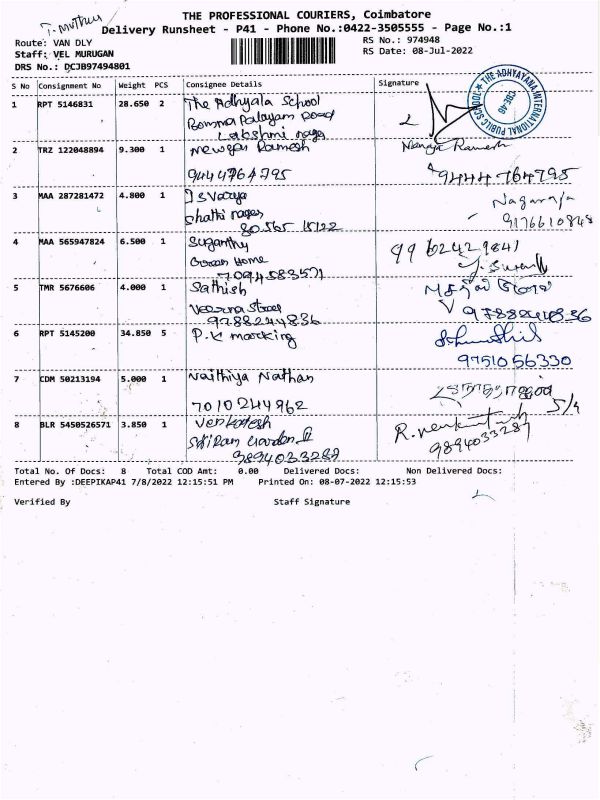 T. Muthu
THE PROFESSIONAL COURIERS, Coimbatore
Delivery Runsheet - P41 - Phone No.:0422-3505555 - Page No.:1
Route: VAN DLY
RS No.: 974948
Staff: VEL MURUGAN
RS Date: 08-Jul-2022
DRS No.: DCJB97494801
S No Consignment No Weight PCS Consignee Details Signature
1 RPT 5146831 28.650 2 The Adhyala School
Bomma Palayam Road
Lakshmi nagar
THE ADHYAYANA INTERNATIONAL PUBLIC SCHOOL CBE-46
2 TRZ 122048894 9.300 1 Ramesh
Ramesh
9444764795 9444764795
3 MAA 287281472 4.800 1
Shathi nagar
Nagaraja
9176610848
4 MAA 565947824 6.500 1 Suganthy
Green Home
7094583571
9962429841
5 TMR 5676606 4.000 1 Sathish
Veerna Street
9788244836 9788244836
6 RPT 5145200 34.850 5 P.K marking
9751056330
7 CDM 50213194 5.000 1 Vaithiya Nathan
7010244962
8 BLR 5450526571 3.850 1 Venkatesh
Sriram Garden II
9894033289
R. Venkatesh
9894033289
Total No. Of Docs: 8 Total COD Amt: 0.00 Delivered Docs: Non Delivered Docs:
Entered By :DEEPIKAP41 7/8/2022 12:15:51 PM Printed On: 08-07-2022 12:15:53
Verified By Staff Signature